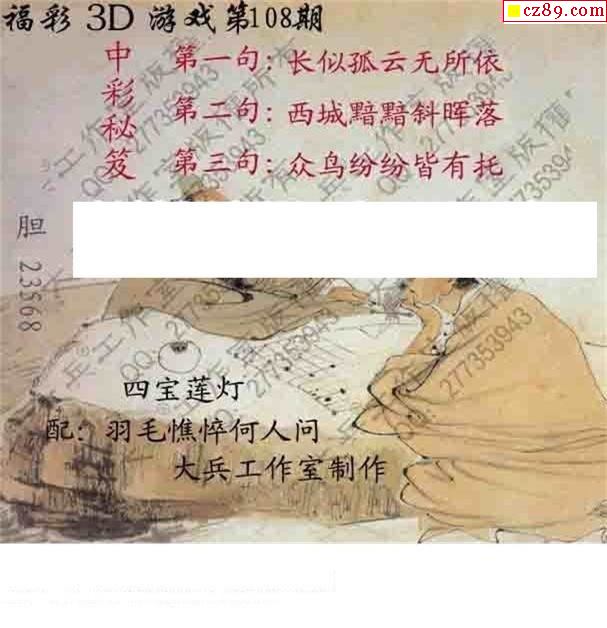 福彩 3D 游戏第108期
cz89.com
中彩秘笈
第一句：长似孤云无所依
第二句：西城黯黯斜晖落
第三句：众鸟纷纷皆有托
胆 23568
四宝莲灯
配：羽毛憔悴何人问
大兵工作室制作
兵®工作室版权所有
QQ:277353943